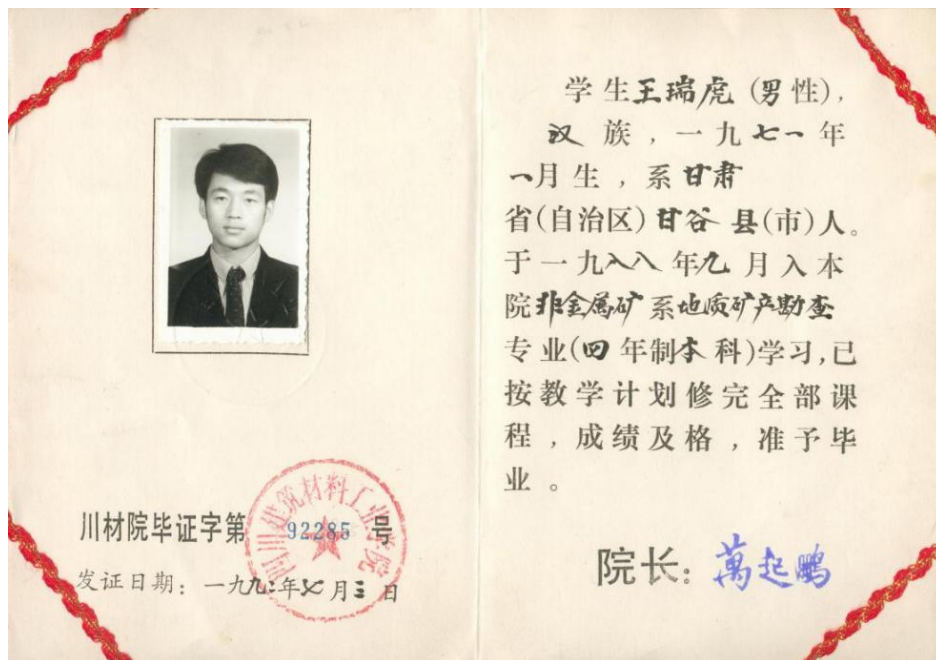 川材院毕证字第 92285 号
发证日期：一九九二年七月三日
四川建筑材料工业学院
学生王瑞虎(男性)，
汉族，一九七一年
一月生，系甘肃
省(自治区)甘谷县(市)人。
于一九八八年九月入本
院非金属矿系地质矿产勘查
专业(四年制本科)学习，已
按教学计划修完全部课
程，成绩及格，准予毕
业。
院长：萬起鹏